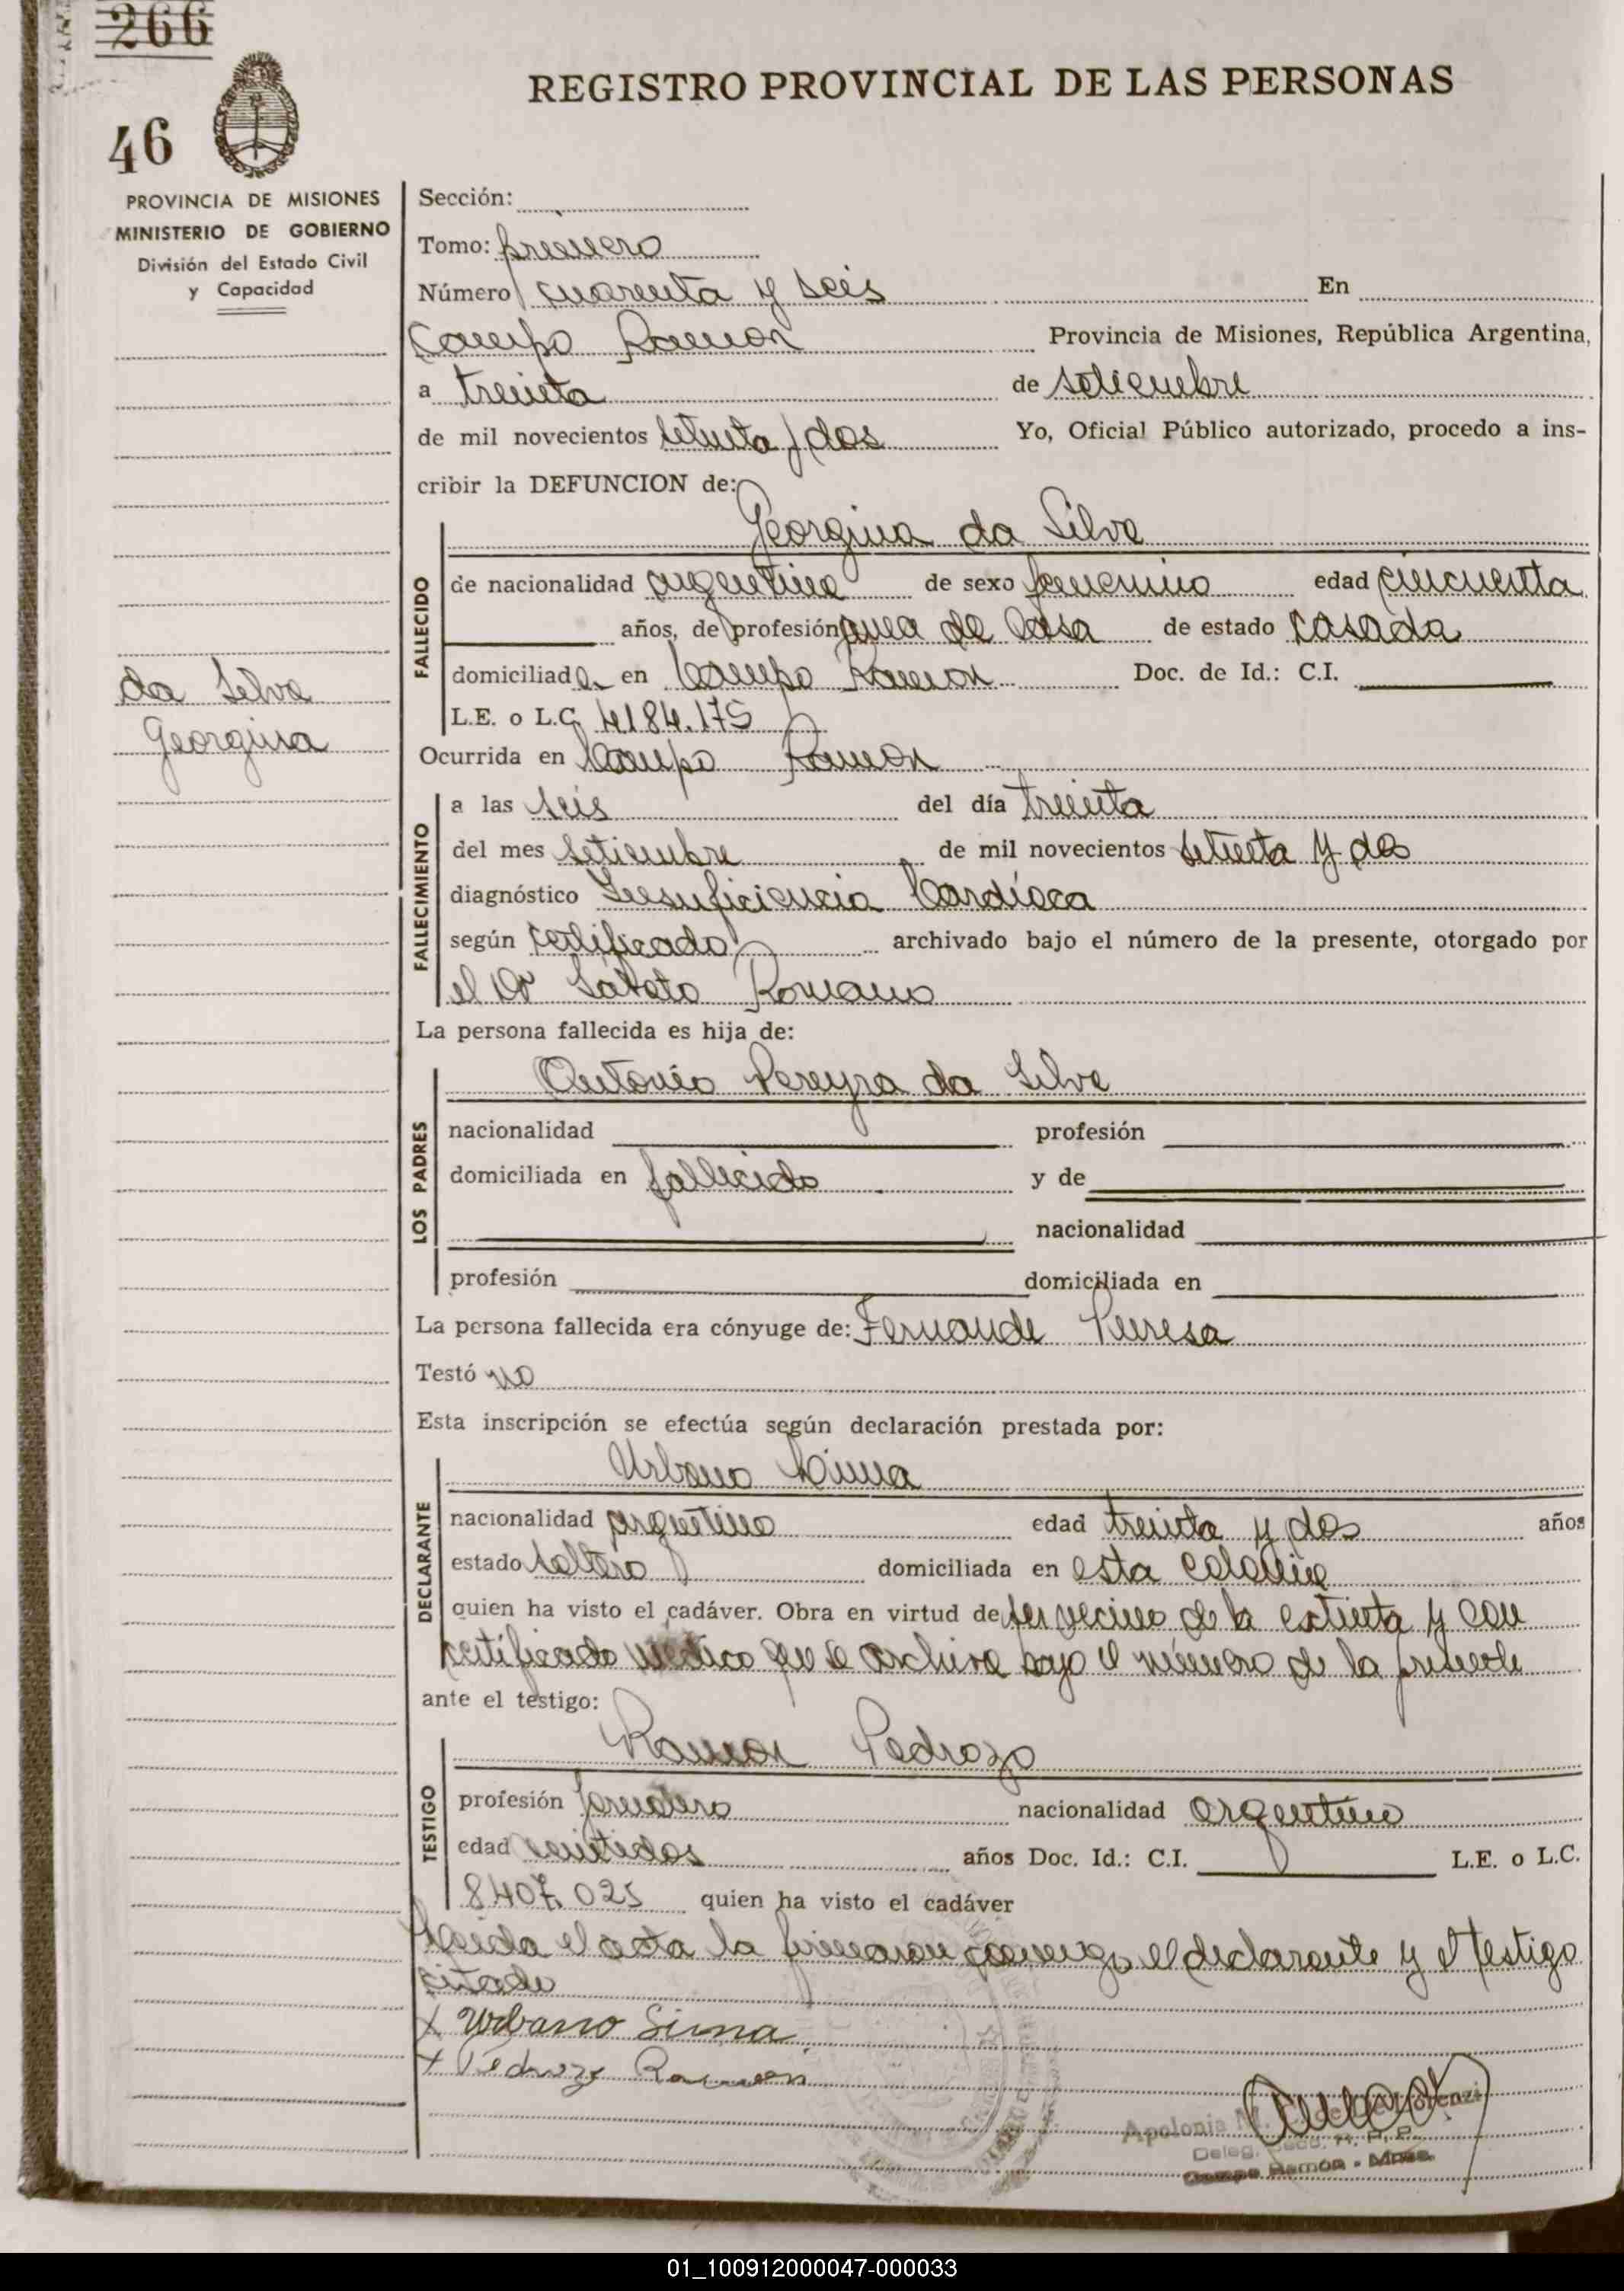 266
46
REGISTRO PROVINCIAL DE LAS PERSONAS
PROVINCIA DE MISIONES
MINISTERIO DE GOBIERNO
División del Estado Civil
y Capacidad
da Silva
Georgina
Sección:
Tomo: primero
Número cuarenta y seis En
Campo Ramon Provincia de Misiones, República Argentina,
a treinta de setiembre
de mil novecientos setenta y dos Yo, Oficial Público autorizado, procedo a ins-
cribir la DEFUNCION de:
Georgina da Silva
FALLECIDO
de nacionalidad argentina de sexo femenino edad cincuenta
años, de profesión ama de casa de estado casada
domiciliada en Campo Ramon Doc. de Id.: C.I.
L.E. o L.C. 4184.175
Ocurrida en Campo Ramon
FALLECIMIENTO
a las seis del día treinta
del mes setiembre de mil novecientos setenta y dos
diagnóstico Insuficiencia Cardíaca
según certificado archivado bajo el número de la presente, otorgado por
el Dr Romano
La persona fallecida es hija de:
Antonio Pereyra da Silva
LOS PADRES
nacionalidad profesión
domiciliada en fallecido y de
nacionalidad
profesión domiciliada en
La persona fallecida era cónyuge de:
Testó no
Esta inscripción se efectúa según declaración prestada por:
Urbano Sinna
DECLARANTE
nacionalidad argentino edad treinta y dos años
estado soltero domiciliada en esta colonia
quien ha visto el cadáver. Obra en virtud de ser vecino de la extinta y con
certificado médico que se archiva bajo el número de la presente
ante el testigo:
Ramon Pedrozo
TESTIGO
profesión jornalero nacionalidad argentino
edad veintidos años Doc. Id.: C.I. L.E. o L.C.
8407.025 quien ha visto el cadáver
Leida el acta la firmaron conmigo el declarante y el testigo
citado
x Urbano Sinna
x Pedrozo Ramon
Apolonia M.
Deleg. Secc. R. P. P.
Campo Ramón - Mnes.
01_100912000047-000033